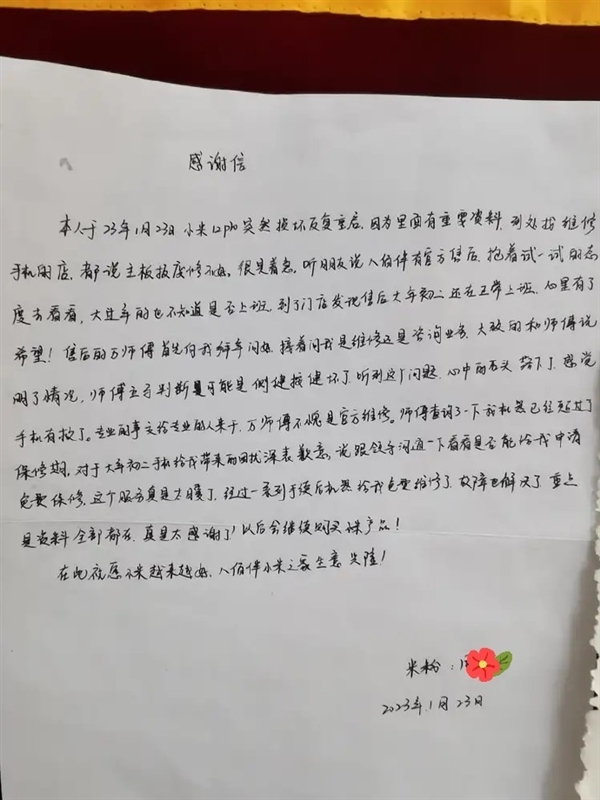 感谢信
本人于23年1月23日小米12pro突然损坏反复重启,因为里面有重要资料,到处找维修
手机的店,都说主板报废修不好,很是着急。听朋友说八佰伴有官方售后,抱着试一试的态
度去看看,大过年的也不知道是否上班,到了门店发现售后大年初二还在正常上班,心里有了
希望!售后的万师傅首先向我新年问好,接着问我是维修还是咨询业务,大致的和师傅说
明了情况,师傅立马判断是可能是侧键按键坏了,听到这个问题,心中的石头落下了,感觉
手机有救了。专业的事交给专业的人来干,万师傅不愧是官方维修。师傅查询了一下说机器已经超过了
保修期,对于大年初二手机给我带来的困扰深表歉意,说跟领导沟通一下看看是否能给我申请
免费保修,这个服务真是太暖了,经过一系列手续后机器给我免费维修了,故障也解决了,重点
是资料全部都在,真是太感谢了!以后会继续购买小米产品!
在此祝愿小米越来越好,八佰伴小米之家生意兴隆!
米粉:周
2023年1月23日